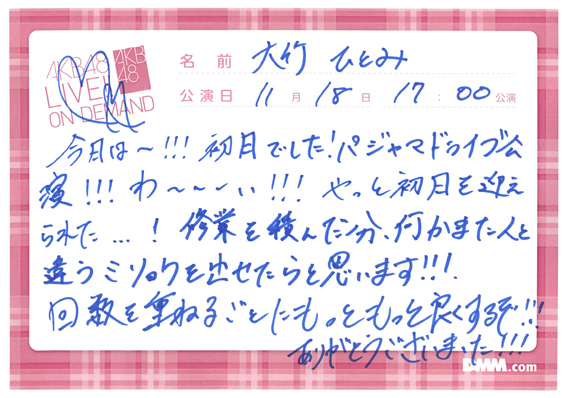 AKB48
LIVE!!
ON DEMAND
AKB
48
名前 大竹 ひとみ
公演日 11月18日 17:00公演
今日は〜!!! 初日でした!パジャマドライブ公
演!!! わ〜〜〜い!!! やっと初日を迎え
られた…! 修業を積んだ分、何かまた人と
違うミリョクを出せたらと思います!!!
回数を重ねるごとにもっともっと良くするぞ!!!
ありがとうございました!!!
DMM.com